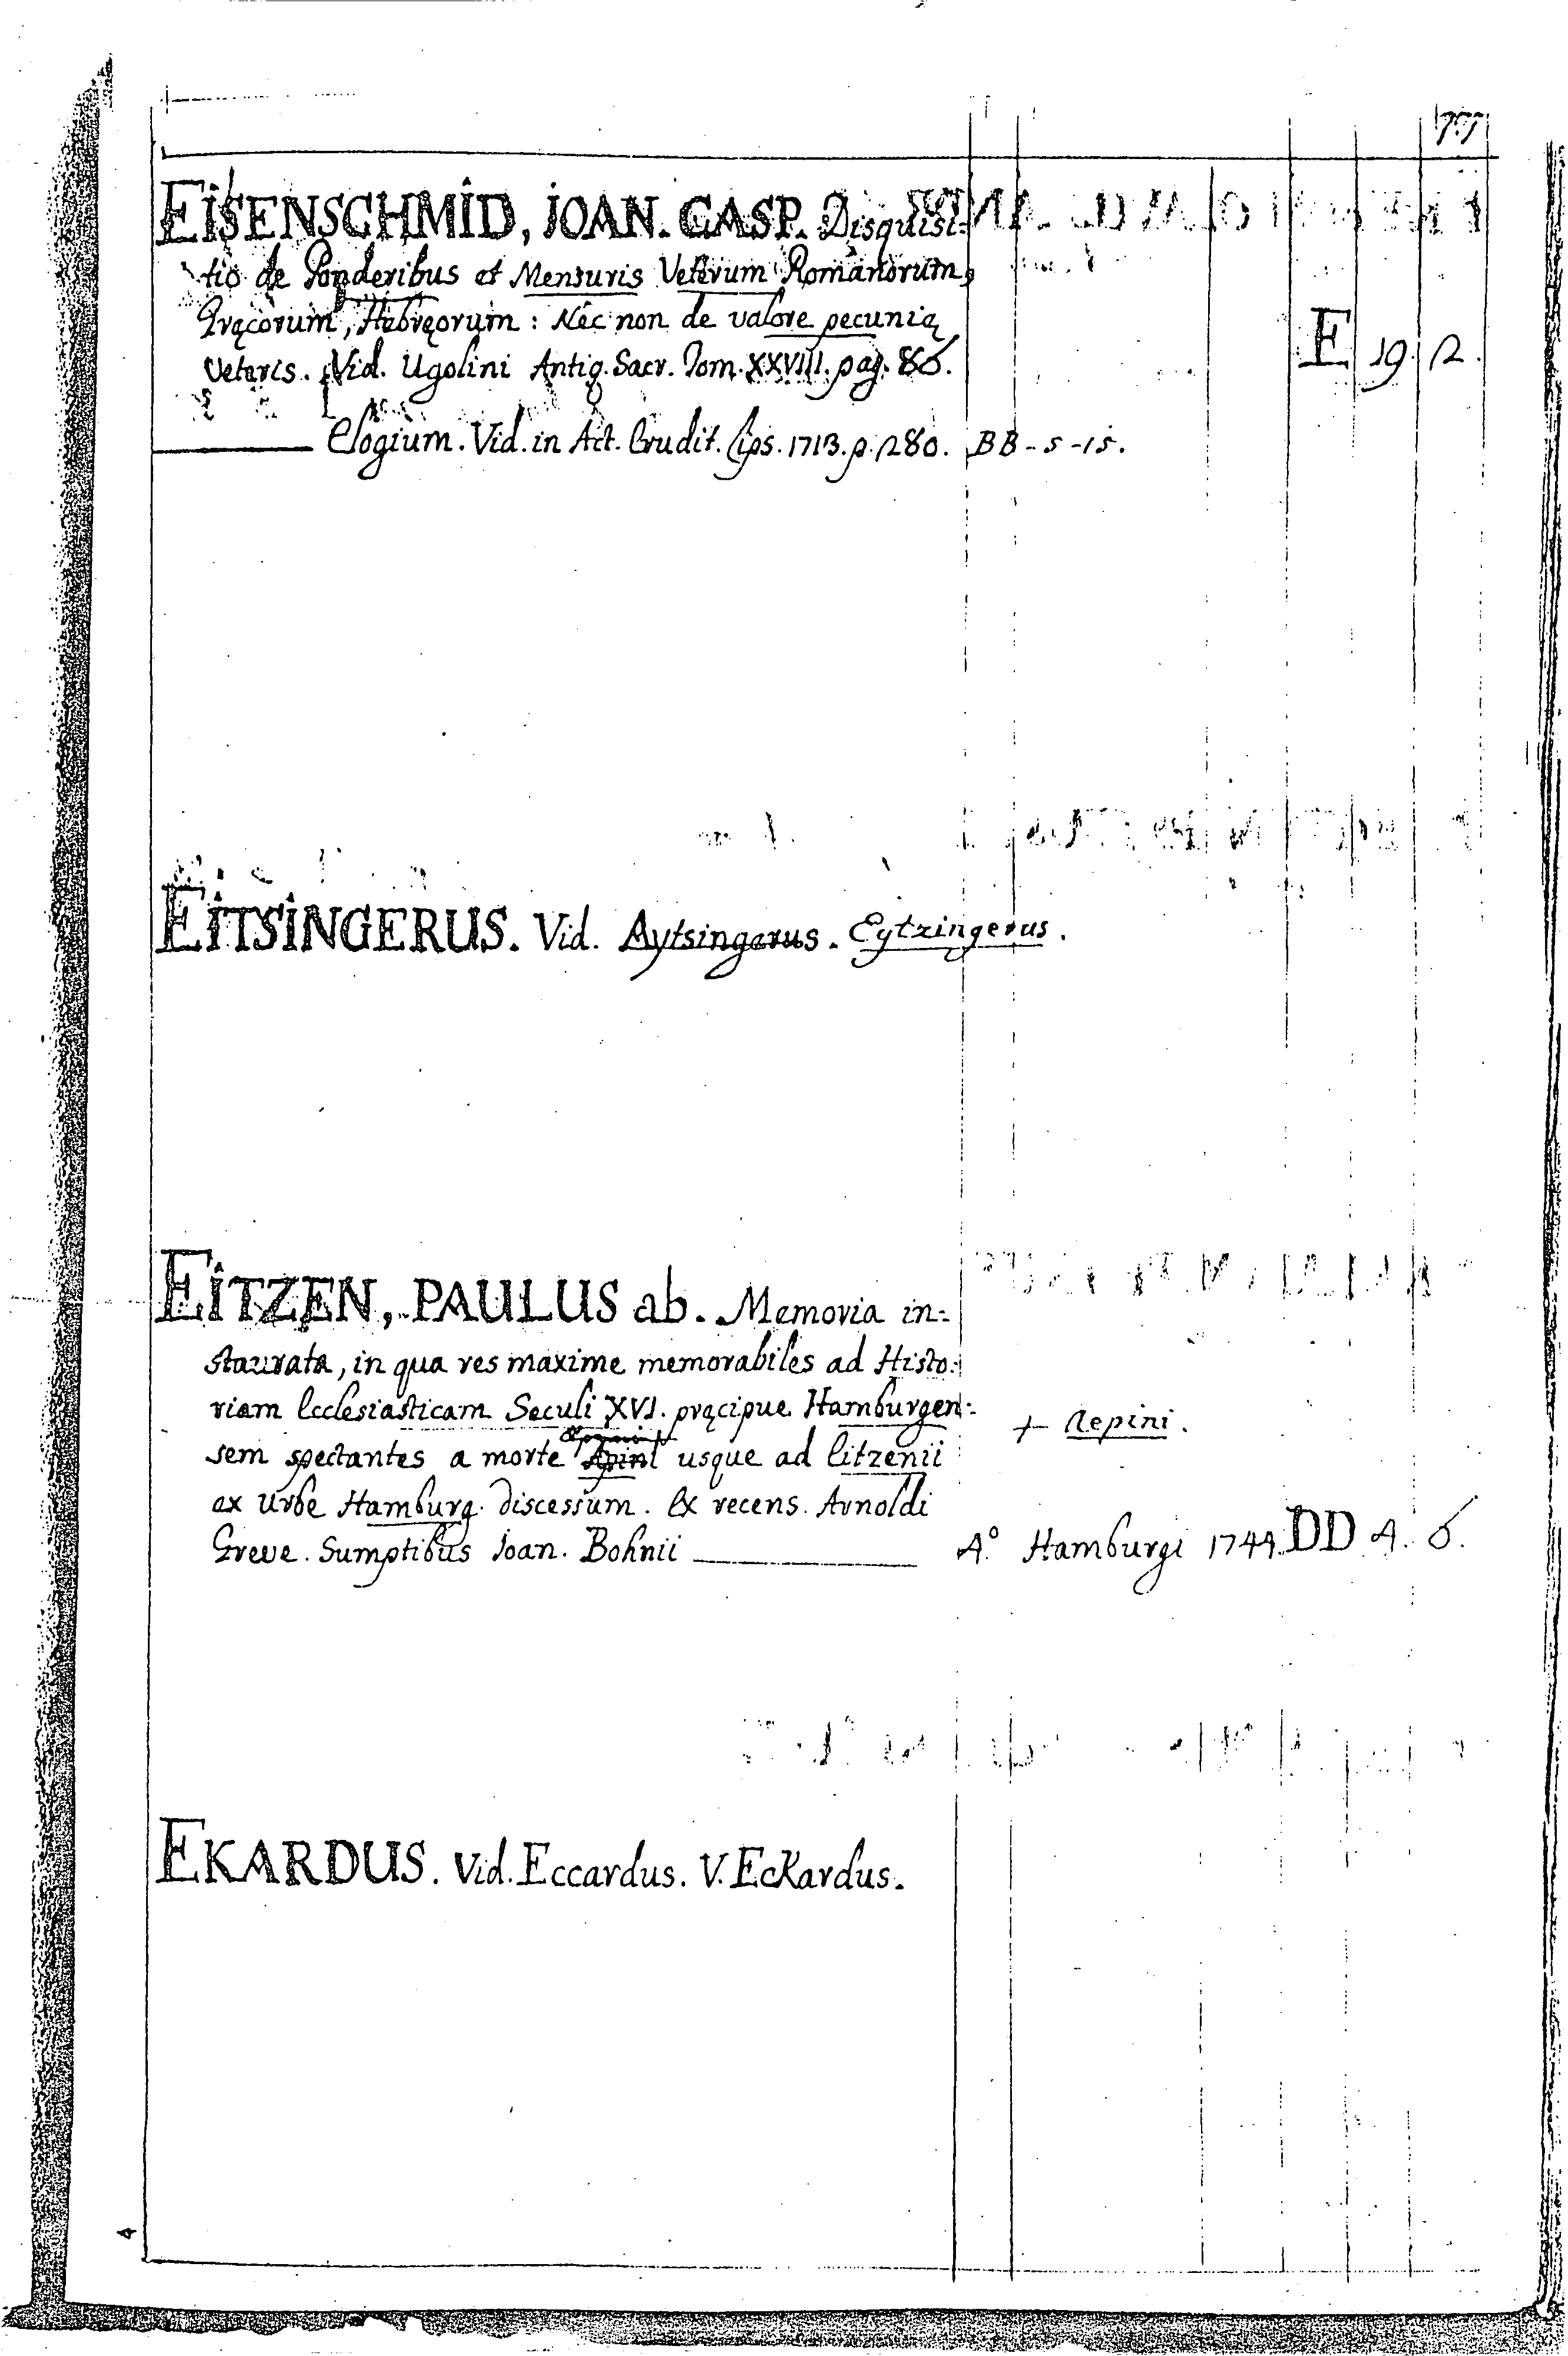 EISENSCHMID, JOAN. CASP. Disquisi-
tio de Ponderibus et Mensuris Veterum Romanorum,
Gręcorum, Hebręorum: Nec non de valore pecunię E 19. 12.
Veteris. Vid. Ugolini Antiq. Sacr. Tom. XXVIII. pag. 86.
——— Elogium. Vid. in Act. Erudit. Lips. 1713. p. 280. BB-5-15.
EITSINGERUS. Vid. Aytsingerus. Eytzingerus.
EITZEN, PAULUS ab. Memoria in-
staurata, in qua res maxime memorabiles ad Histo-
riam Ecclesiasticam Seculi XVI. pręcipue Hamburgen-
+ Aepini.
sem spectantes a morte Apini usque ad Eitzenii
ex Urbe Hamburg. discessum. Ex recens. Arnoldi
Greve. Sumptibus Joan. Bohnii ——— 4.° Hamburgi 1744. DD 4. 6.
EKARDUS. Vid. Eccardus. V. Eckardus.